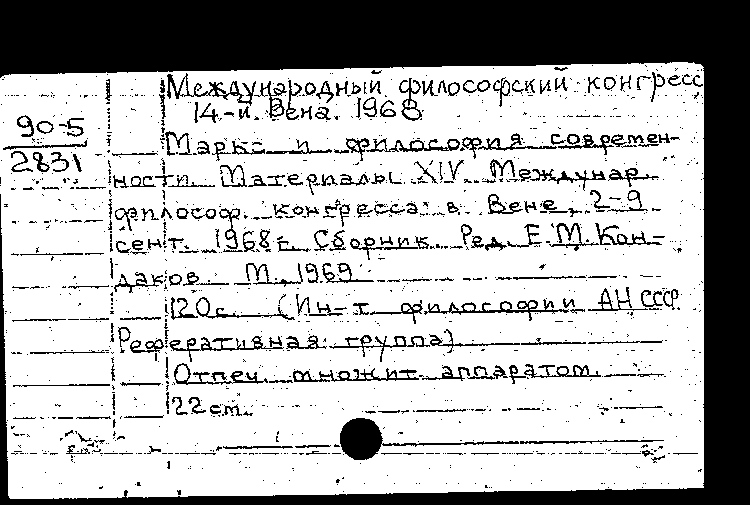 Международный философский конгресс
14-й. Вена. 1968
90-5
2831
Маркс и философия современ-
ности. Материалы XIV Междунар.
философ. конгресса в Вене, 2-9
сент. 1968 г. Сборник. Ред. Е.М. Кон-
даков М., 1969
120с. (Ин-т философии АН СССР
Реферативная группа)
Отпеч. множит. аппаратом.
22 см.